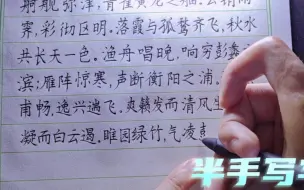 舸舰弥津,青雀黄龙之舳。云销雨
霁,彩彻区明。落霞与孤鹜齐飞,秋水
共长天一色。渔舟唱晚,响穷彭蠡之
滨;雁阵惊寒,声断衡阳之浦。
甫畅,逸兴遄飞。爽籁发而清风生
凝而白云遏。睢园绿竹,气凌
半手写